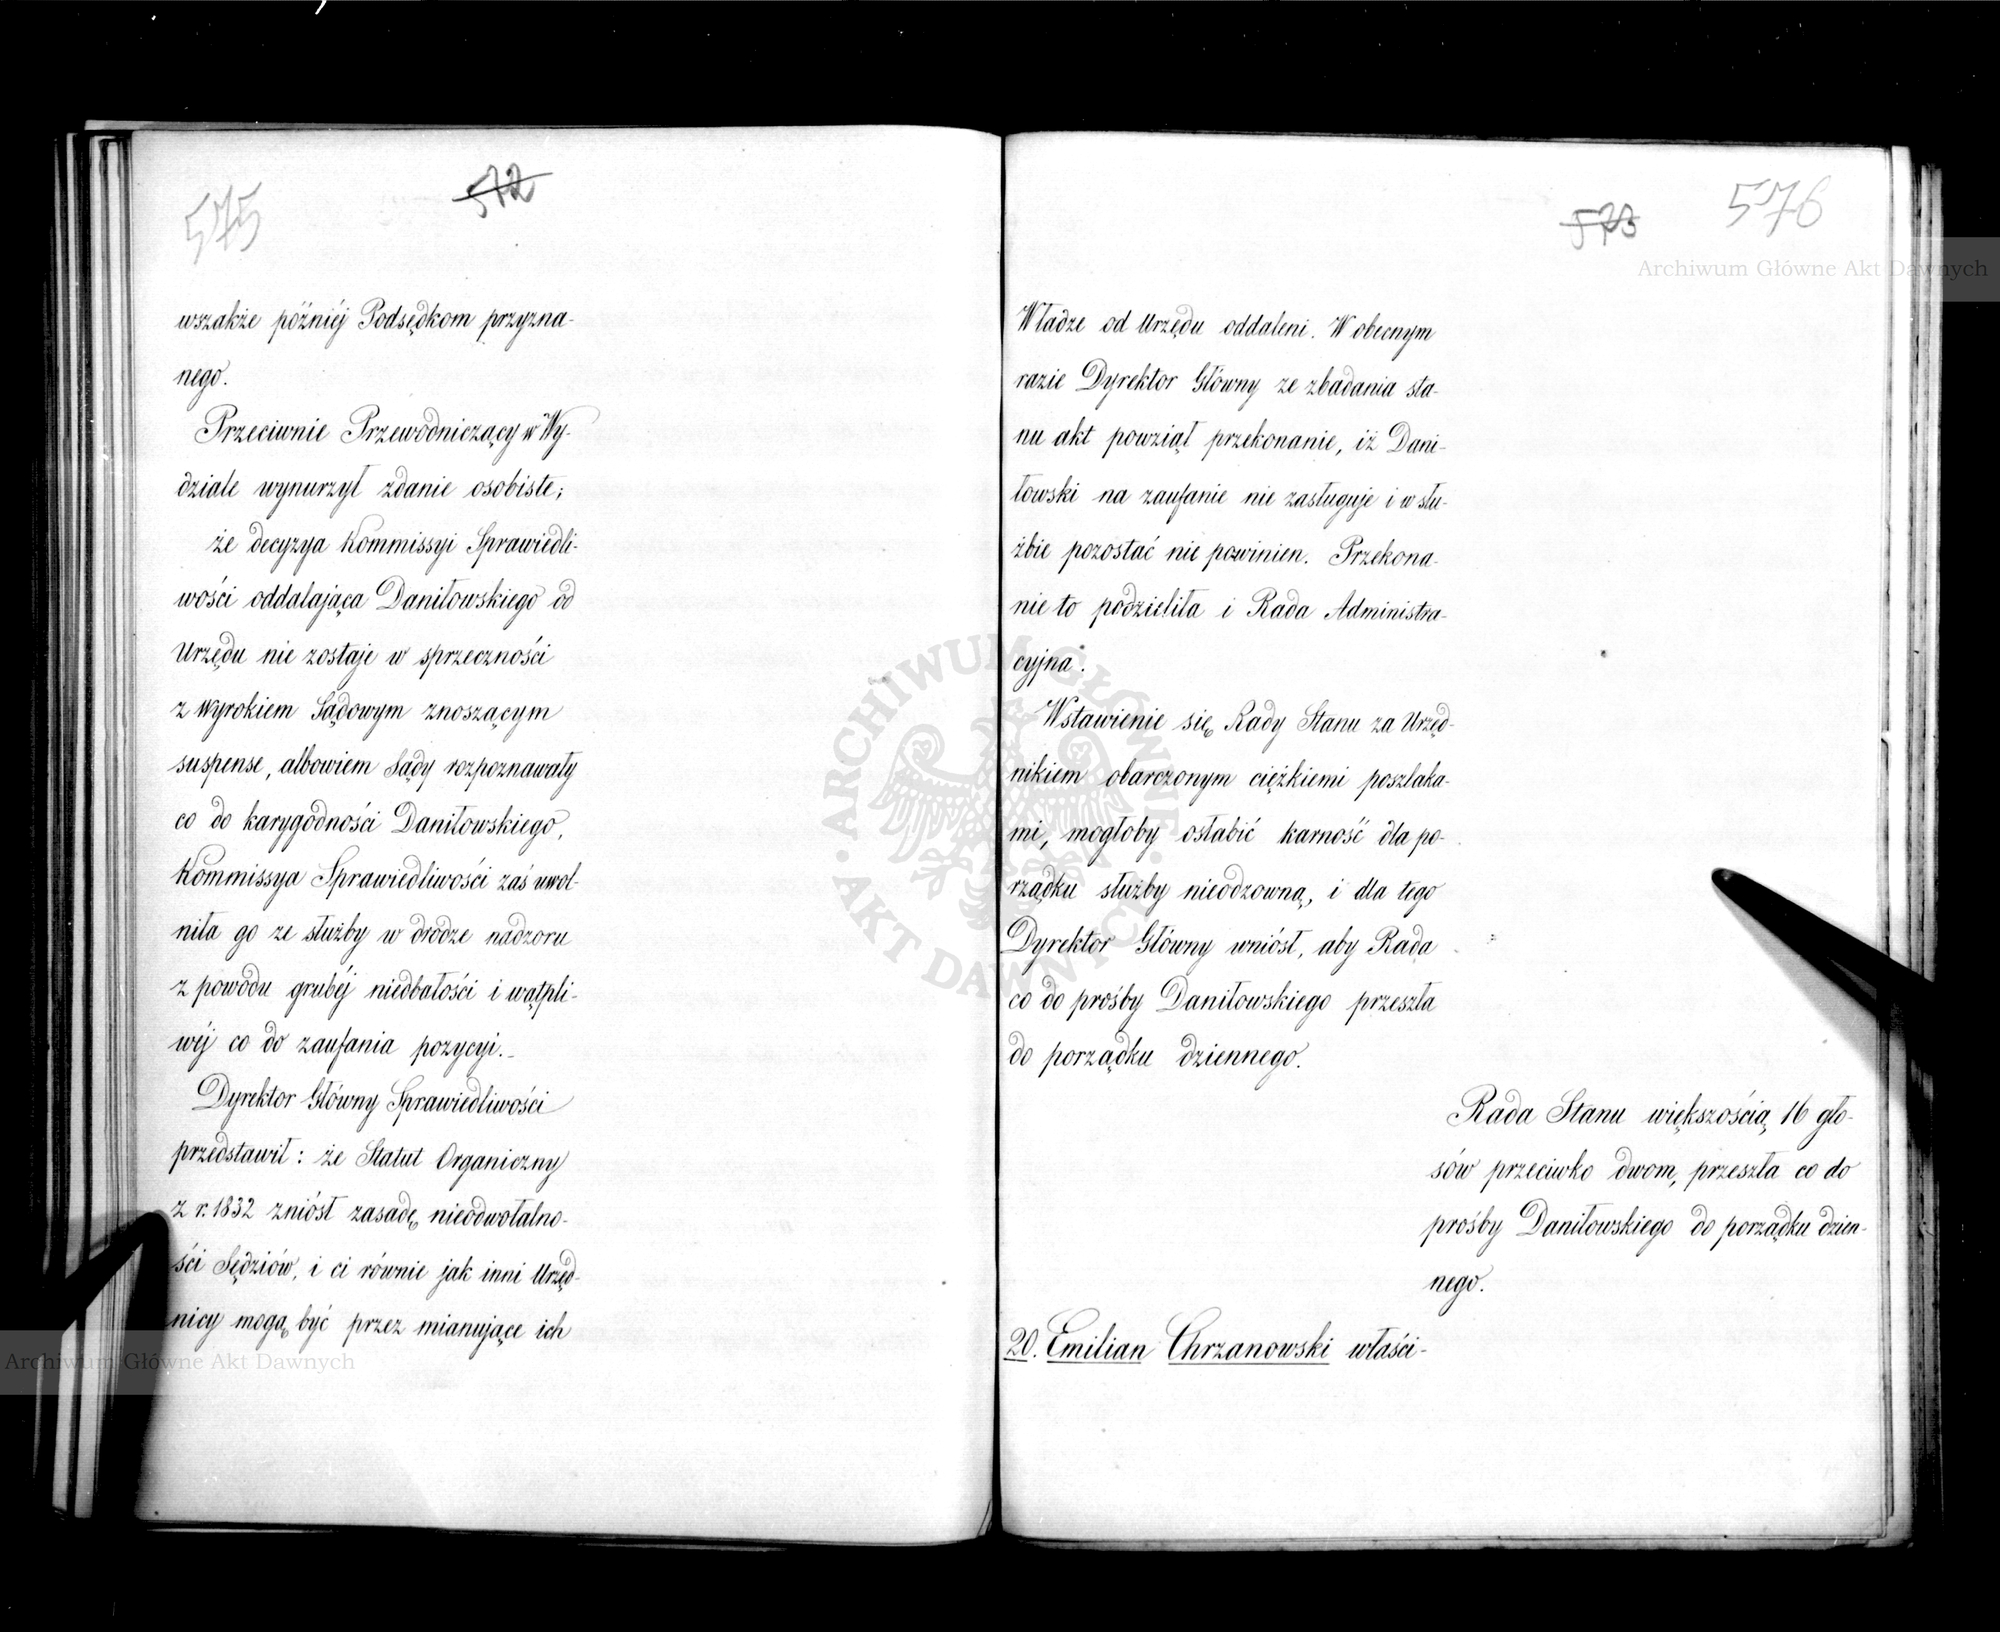 575
572
wszakże późniéj Podsędkom przyzna-
nego.
Przeciwnie Przewodniczący w Wy-
dziale wynurzył zdanie osobiste;
że decyzya Kommissyi Sprawiedli-
wości oddalająca Daniłowskiego od
Urzędu nie zostaje w sprzeczności
z Wyrokiem Sądowym znoszącym
suspense, albowiem Sądy rozpoznawały
co do karygodności Daniłowskiego,
Kommissya Sprawiedliwości zaś uwol-
niła go ze służby w drodze nadzoru
z powodu grubéj niedbałości i wątpli-
wéj co do zaufania pozycyi.
Dyrektor Główny Sprawiedliwości
przedstawił: że Statut Organiczny
z r. 1832 zniósł zasadę nieodwołalno-
ści Sędziów, i ci równie jak inni Urzęd-
nicy mogą być przez mianujące ich
573
576
Władze od Urzędu oddaleni. W obecnym
razie Dyrektor Główny ze zbadania sta-
nu akt powziął przekonanie, iż Dani-
łowski na zaufanie nie zasługuje i w słu-
żbie pozostać nie powinien. Przekona-
nie to podzieliła i Rada Administra-
cyjna.
Wstawienie się Rady Stanu za Urzęd-
nikiem obarczonym ciężkiemi poszlaka-
mi, mogłoby osłabić karność dla po-
rządku służby nieodzowną, i dla tego
Dyrektor Główny wniósł, aby Rada
co do prośby Daniłowskiego przeszła
do porządku dziennego.
Rada Stanu większością 16 gło-
sów przeciwko dwom, przeszła co do
prośby Daniłowskiego do porządku dzien-
nego.
20. Emilian Chrzanowski właści-
Archiwum Główne Akt Dawnych
Archiwum Główne Akt Dawnych
ARCHIWUM GŁÓWNE
AKT DAWNYCH